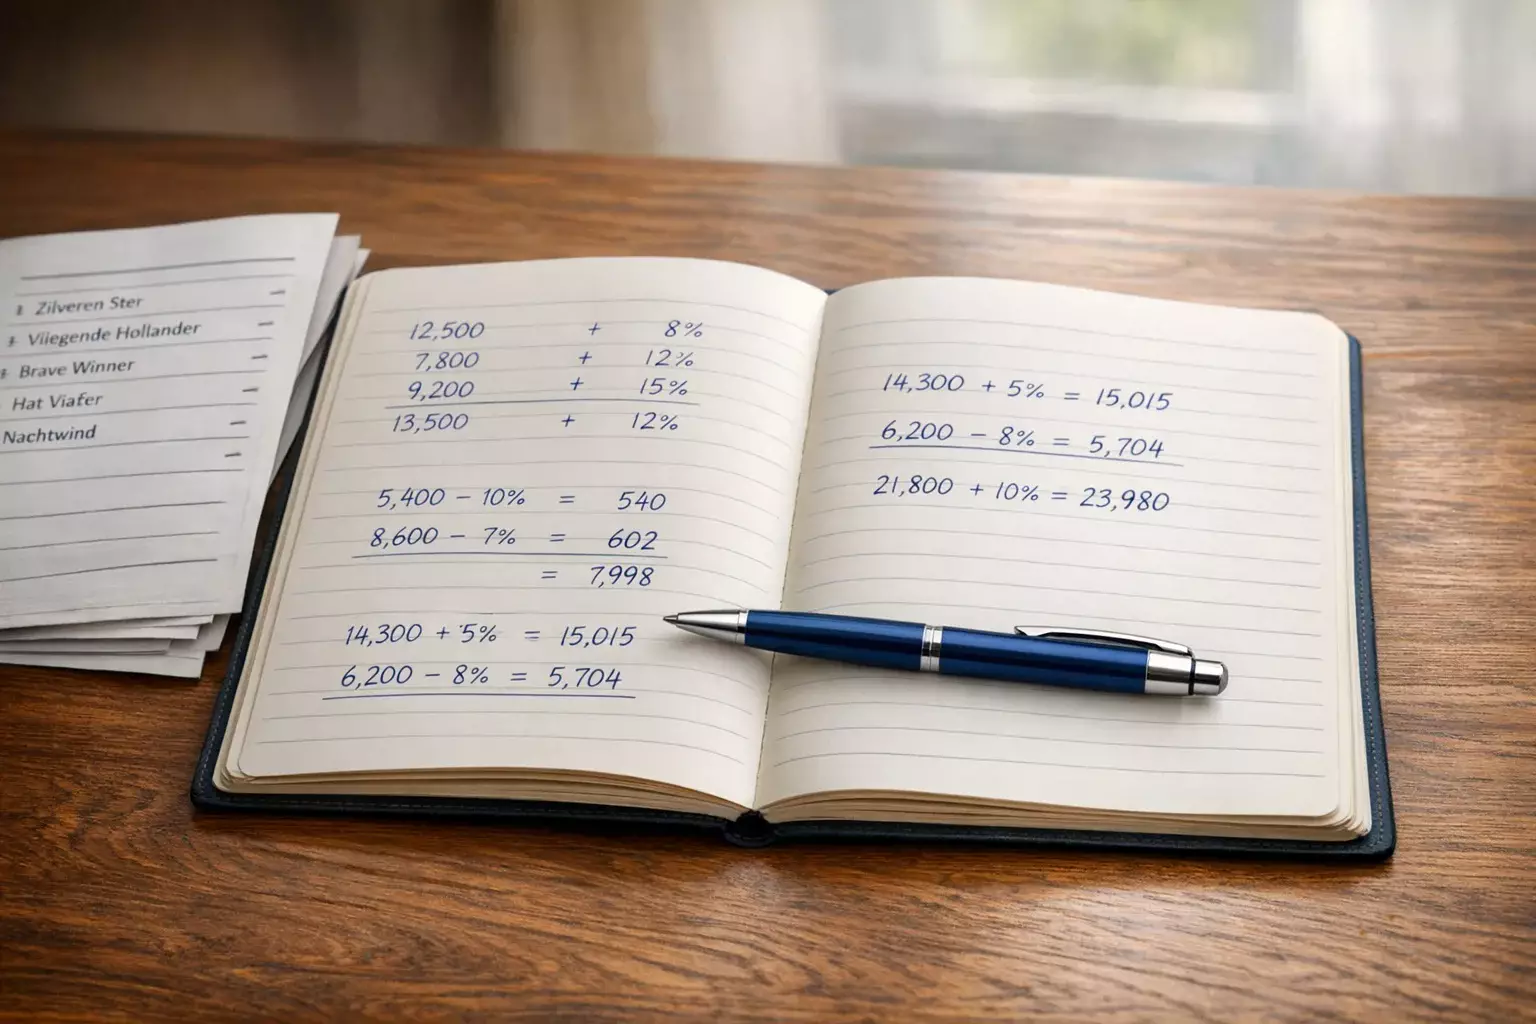 Zilveren Ster
Vliegende Hollander
Brave Winner
Hat Viafer
Nachtwind
12,500 + 8%
7,800 + 12%
9,200 + 15%
13,500 + 12%
5,400 – 10% = 540
8,600 – 7% = 602
= 7,998
14,300 + 5% = 15,015
6,200 – 8% = 5,704
14,300 + 5% = 15,015
6,200 – 8% = 5,704
21,800 + 10% = 23,980